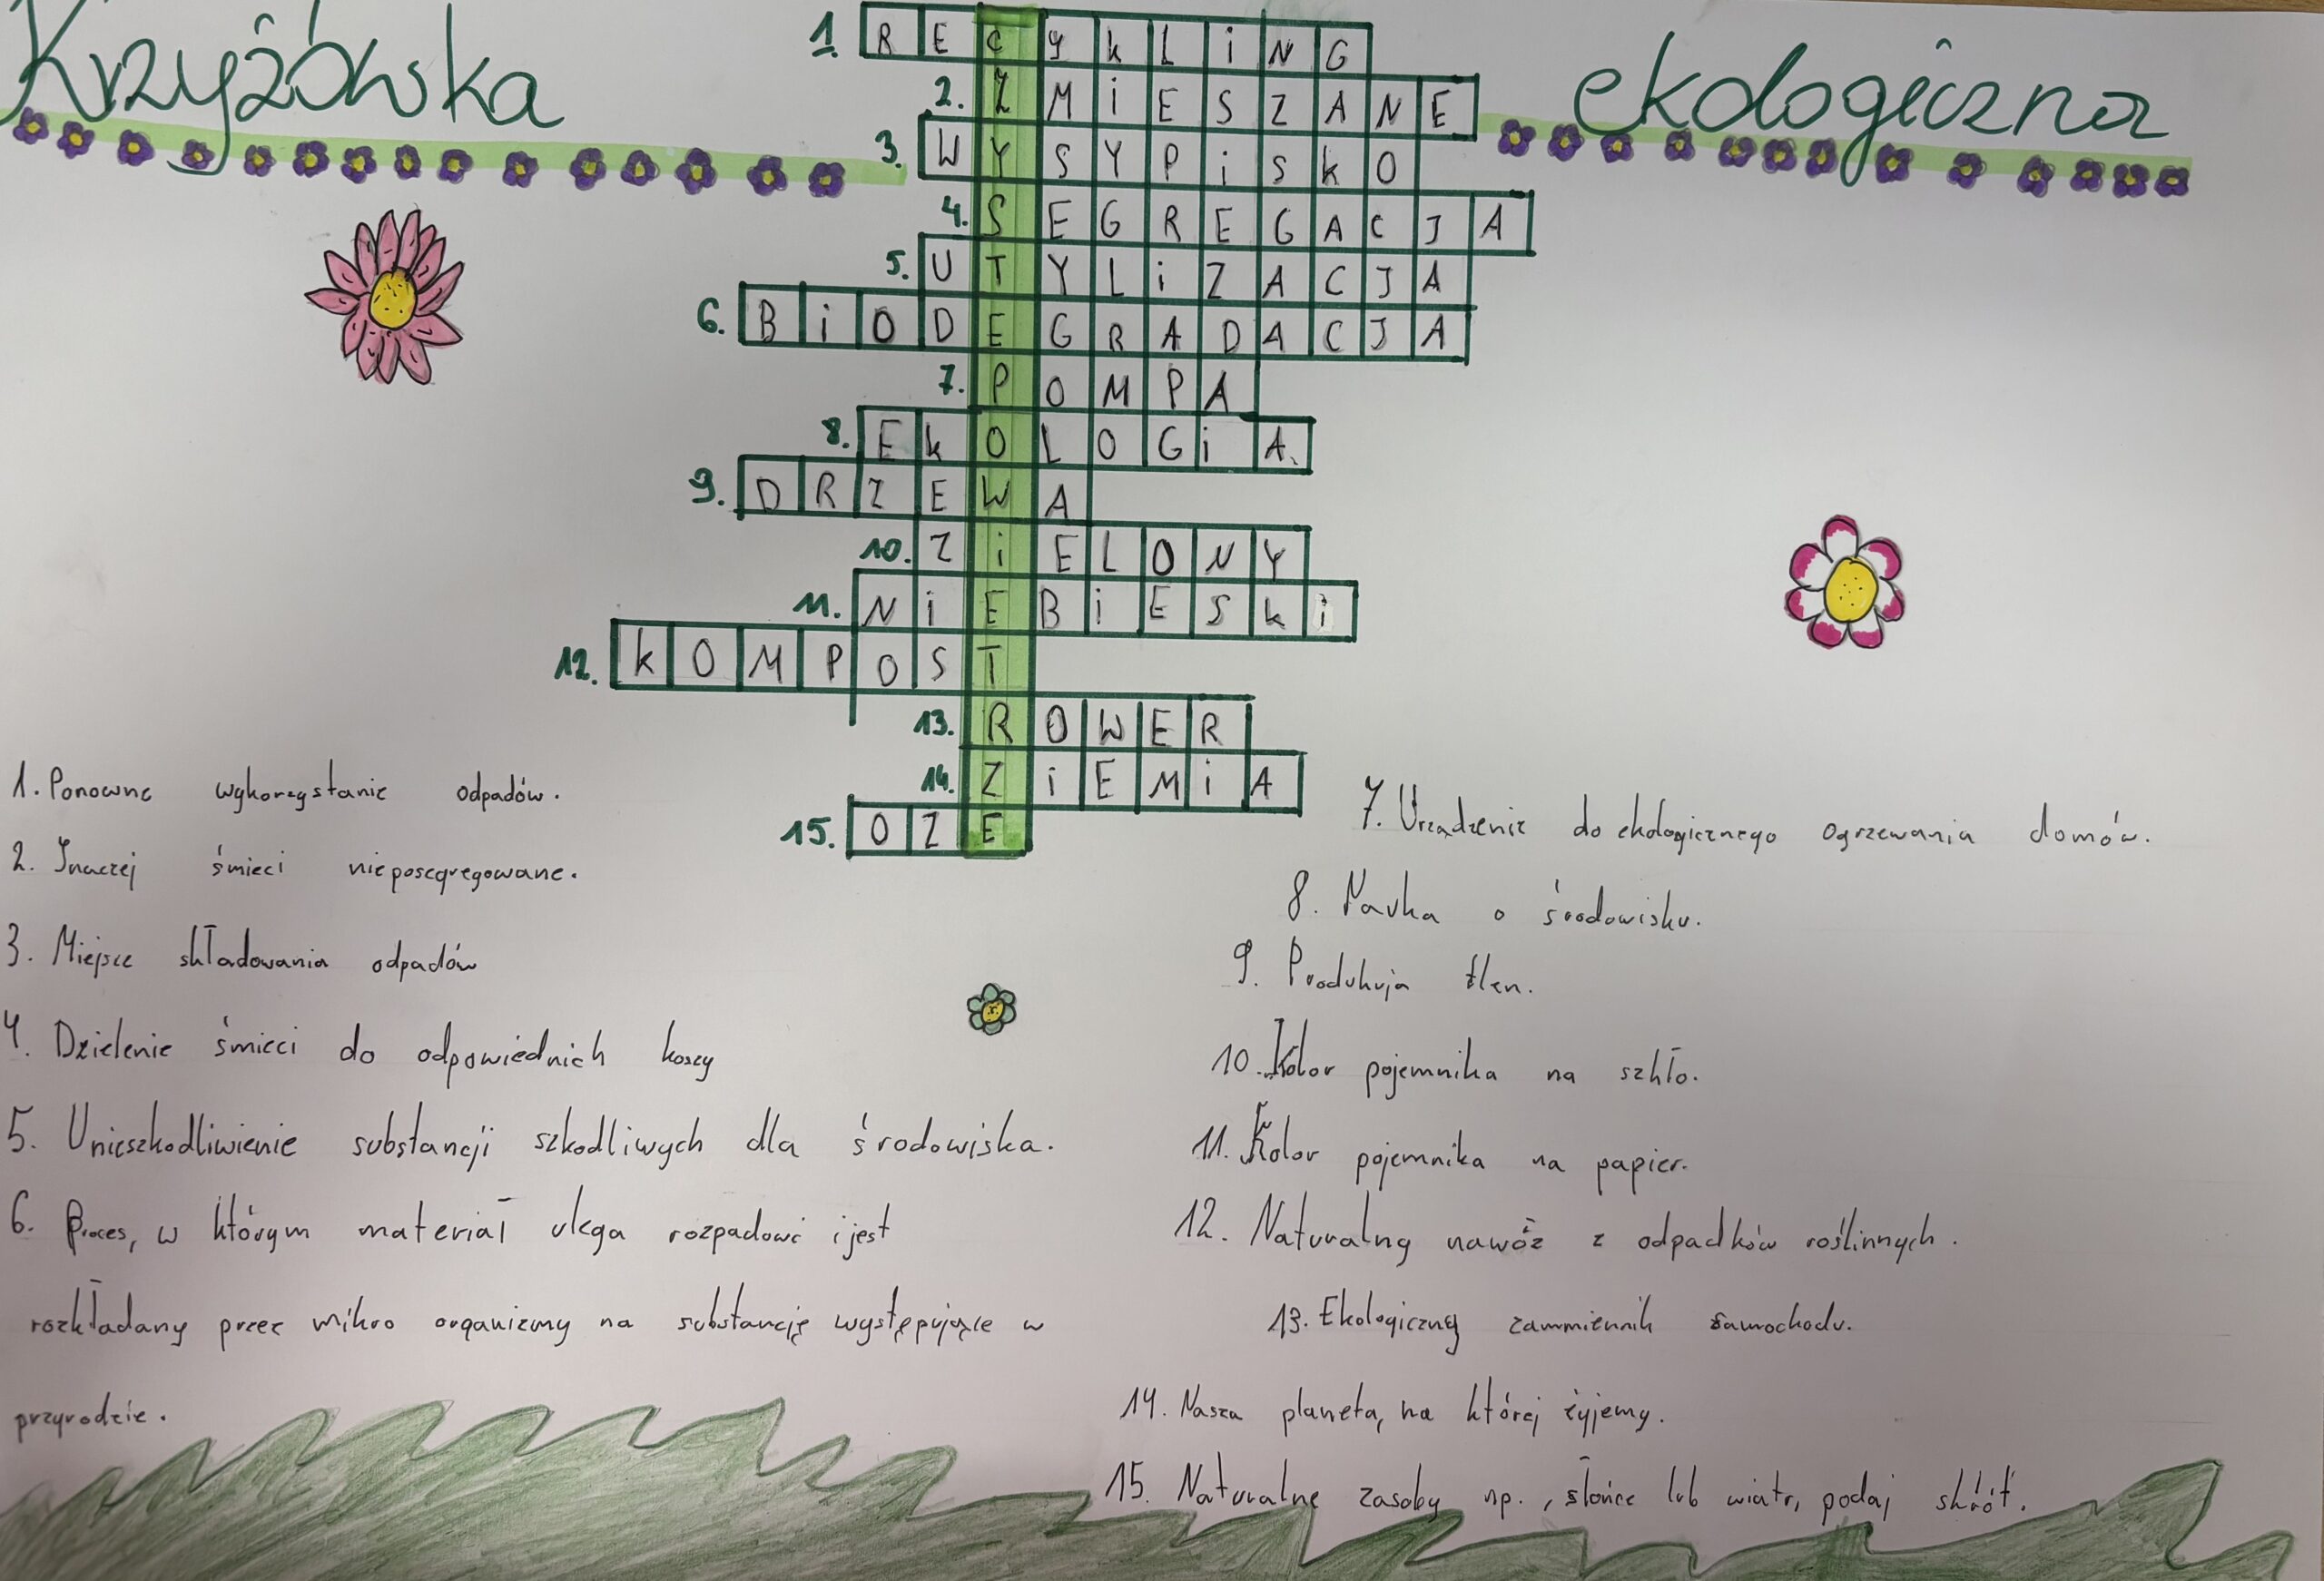 Krzyżówka ekologiczna
1. RECYkLiNG
2. ZMiESZANE
3. WYSYPiSkO
4. SEGREGACJA
5. UTYLiZACJA
6. BiODEGRADACJA
7. POMPA
8. EkOLOGiA
9. DRZEWA
10. ZiELONY
11. NiEBiESki
12. kOMPOST
13. ROWER
14. ZiEMiA
15. OZE
1. Ponowne wykorzystanie odpadów.
2. Inaczej śmieci nieposegregowane.
3. Miejsce składowania odpadów
4. Dzielenie śmieci do odpowiednich koszy
5. Unieszkodliwienie substancji szkodliwych dla środowiska.
6. Proces, w którym materiał ulega rozpadowi i jest
rozkładany przez mikro organizmy na substancję występujące w
przyrodzie.
7. Urządzenie do ekologicznego ogrzewania domów.
8. Nauka o środowisku.
9. Produkują tlen.
10. Kolor pojemnika na szkło.
11. Kolor pojemnika na papier.
12. Naturalny nawóz z odpadków roślinnych.
13. Ekologiczny zammiennik samochodu.
14. Nasza planeta, na której żyjemy.
15. Naturalne zasoby np., słońce lub wiatr, podaj skrót.